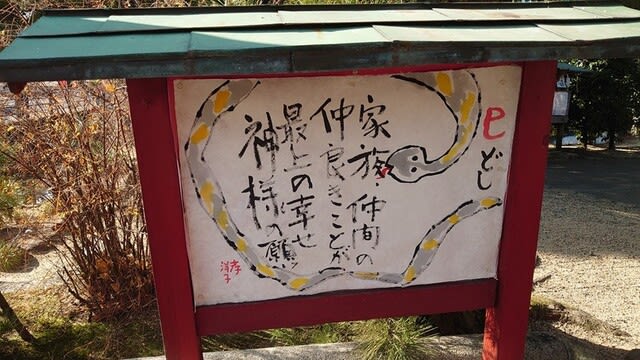 巳どし
家族仲間の
仲良きことが
最上の幸せ
神様の願
孝